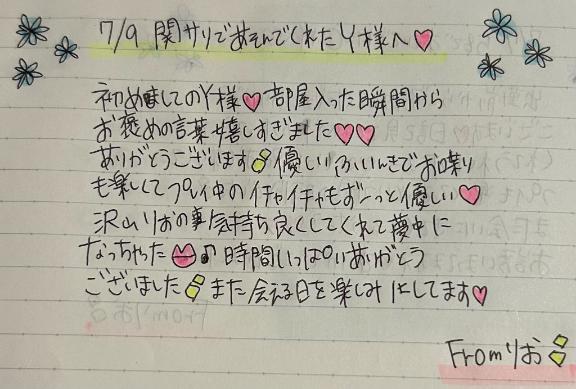 7/9 関サリであそんでくれたY様へ♡
初めましてのY様♡部屋入った瞬間から
お褒めの言葉嬉しすぎました♡♡
ありがとうございます 優しいふいんきでお喋り
も楽しくてプレイ中のイチャイチャもずーっと優しい♡
沢山りおの事気持ち良くしてくれて夢中に
なっちゃった♪時間いっぱいありがとう
ございました また会える日を楽しみにしてます♡
Fromりお